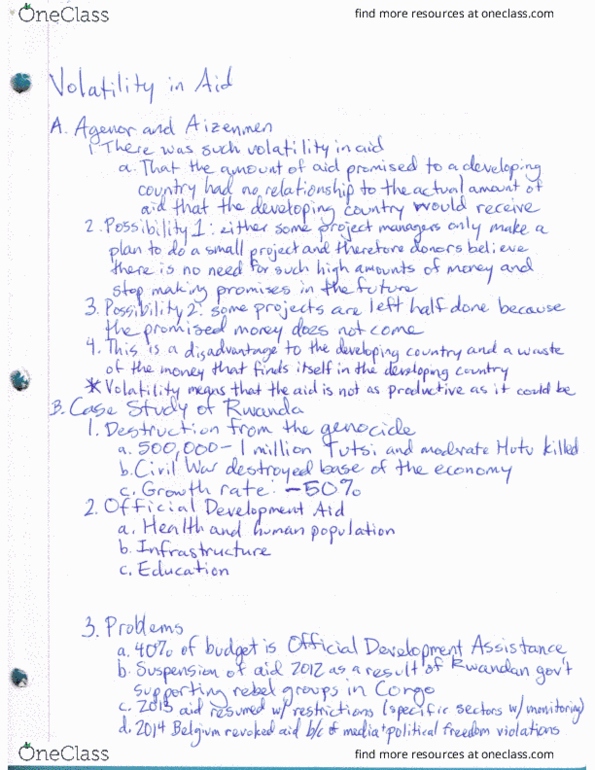 OneClass
find more resources at oneclass.com
Volatility in Aid
A. Agenor and Aizenmen
1 There was such volatility in aid
a. That the amount of aid promised to a developing
country had no relationship to the actual amount of
aid that the developing country would receive
2. Possibility 1: either some project managers only make a
plan to do a small project and therefore donors believe
there is no need for such high amounts of money and
stop making promises in the future
3. Possibility 2: some projects are left half done because
the promised money does not come
4. This is a disadvantage to the developing country and a waste
of the money that finds itself in the developing country
* Volatility means that the aid is not as productive as it could be
B. Case Study of Rwanda
1. Destruction from the genocide
a. 500,000-1 million Tutsi and moderate Hutu killed
b. Civil War destroyed base of the economy
c. Growth rate: -50%
2. Official Development Aid
a. Health and human population
b. Infrastructure
c. Education
3. Problems
a. 40% of budget is Official Development Assistance
b. Suspension of aid 2012 as a result of Rwandan gov't
supporting rebel groups in Congo
c. 2013 aid resumed w/ restrictions (specific sectors w/ monitoring)
d. 2014 Belgium revoked aid b/c of media + political freedom violations
OneClass
find more resources at oneclass.com